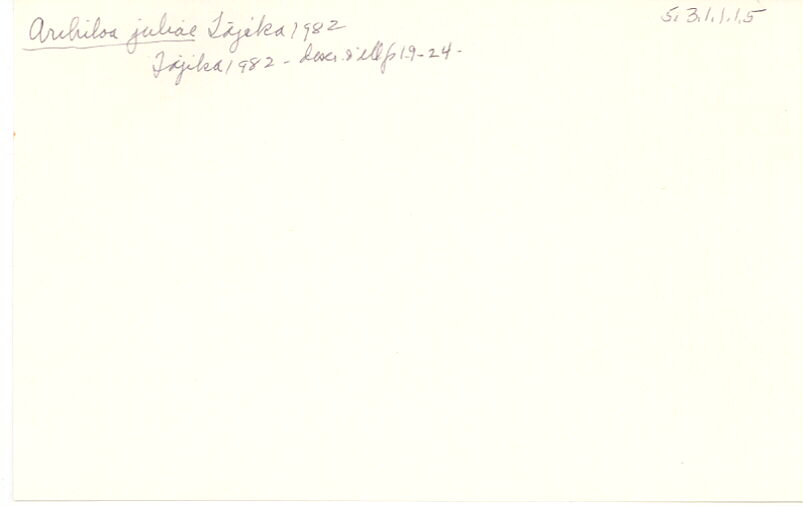 Archiloa juliae Tajika 1982 5.3.1.1.1.5
Tajika 1982 - descr. & ill p 19-24-